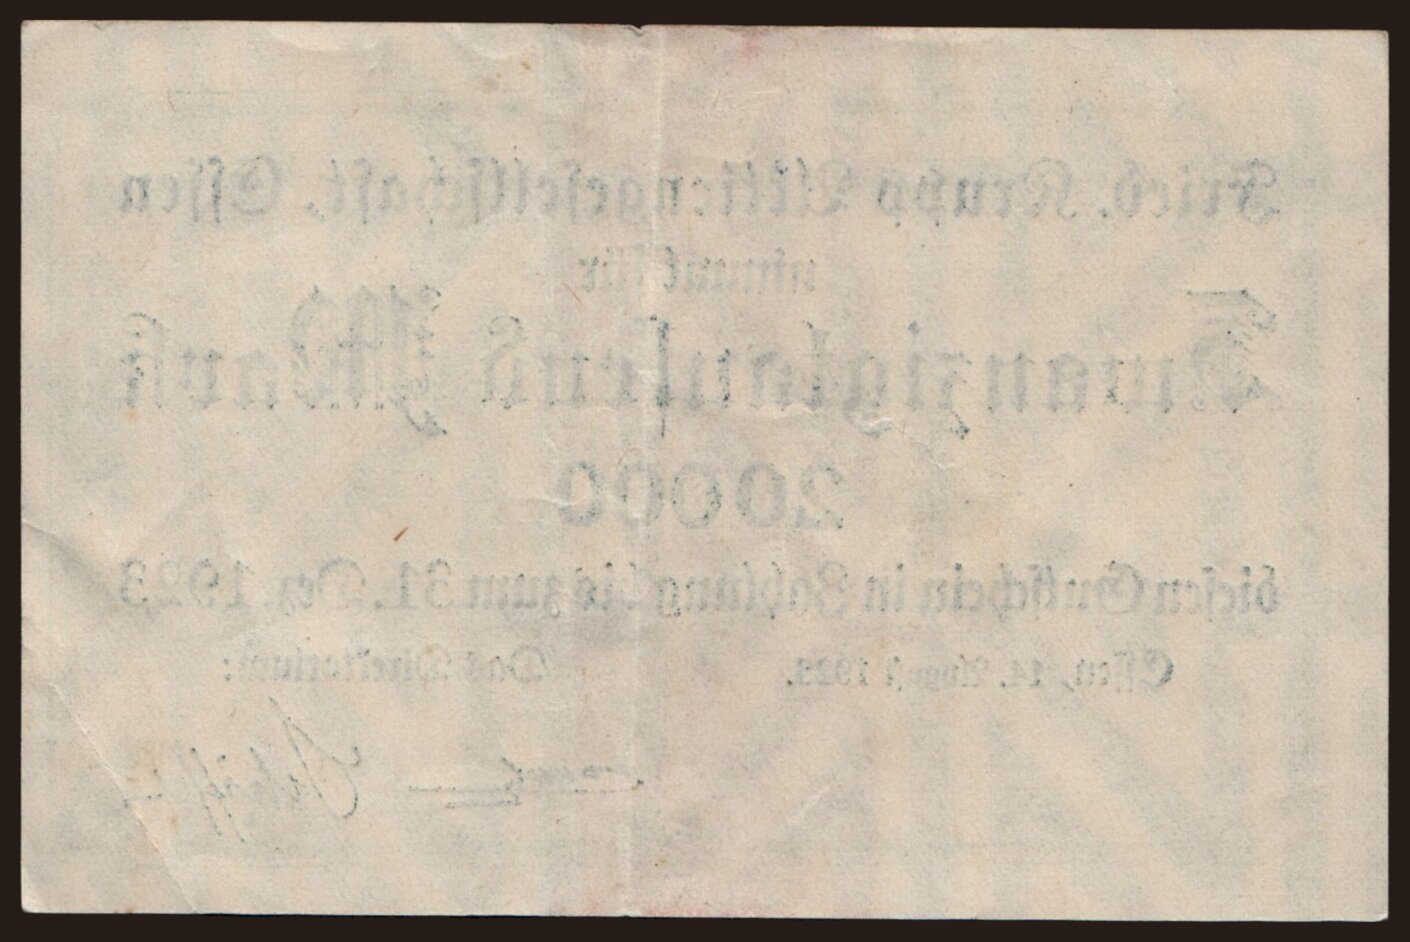 Fried. Krupp Aktiengesellschaft, Essen
nimmt für
Zwanzigtausend Mark
20000
diesen Gutschein in Zahlung bis zum 31. Dez. 1923
Essen, 14. August 1923. Das Direktorium: